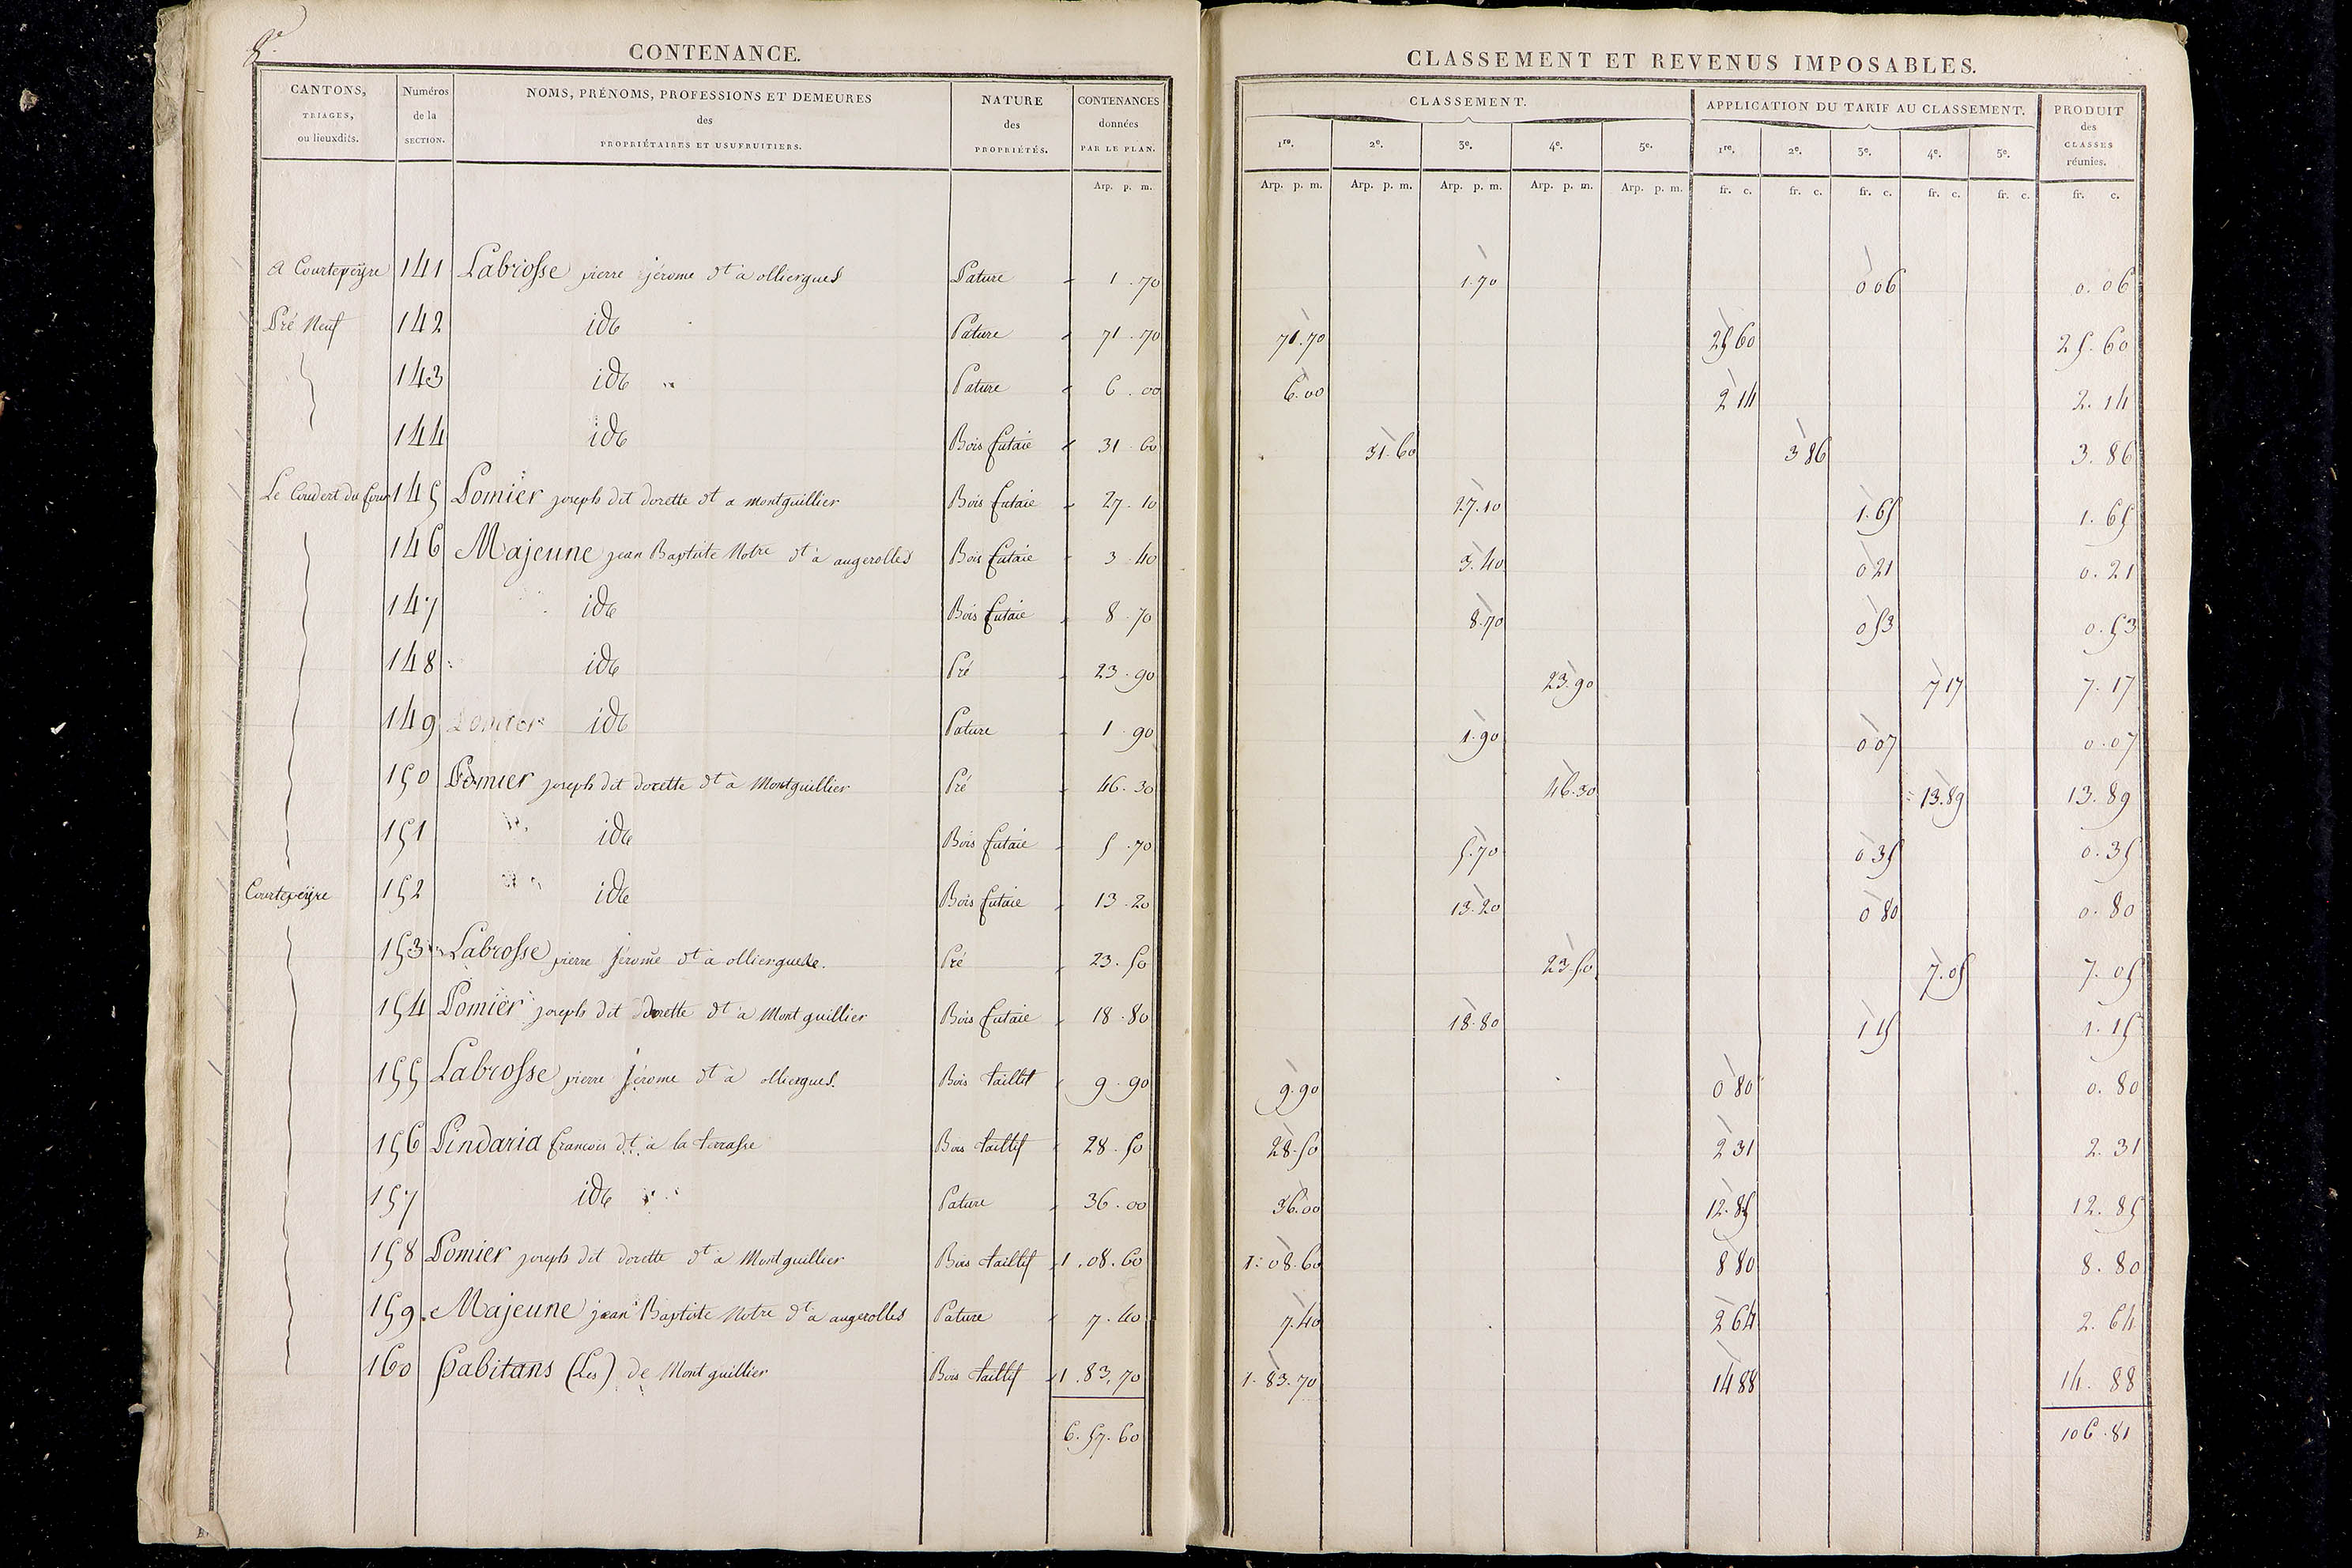 8e
CONTENANCE.
CANTONS, TRIAGES, ou lieuxdits. | Numéros de la SECTION. | NOMS, PRÉNOMS, PROFESSIONS ET DEMEURES des PROPRIÉTAIRES ET USUFRUITIERS. | NATURE des PROPRIÉTÉS. | CONTENANCES données PAR LE PLAN.
Arp. p. m.
a Courtepeyre 141 Labrosse pierre jérome dt a olliergues Pature 1.70
Pré Neuf 142 ide Pature 71.70
143 ide Pature 6.00
144 ide Bois futaie 31.60
Le Coudert du four 145 Pomier joseph dit dorette dt a montguillier Bois futaie 27.10
146 Majeune jean Baptiste Notre dt à augerolles Bois futaie 3.40
147 ide Bois futaie 8.70
148 ide Pré 23.90
149 Pomier ide Pature 1.90
150 Pomier joseph dit dorette dt à Montguillier Pré 46.30
151 ide Bois futaie 5.70
Courtepeyre 152 ide Bois futaie 13.20
153 Labrosse pierre jérome dt à olliergues Pré 23.50
154 Pomier joseph dit dorette dt à Mont guillier Bois futaie 18.80
155 Labrosse pierre jérome dt à olliergues. Bois taillif 9.90
156 Pindaria francois dt à la terrasse Bois taillif 28.50
157 ide Pature 36.00
158 Pomier joseph dit dorette dt a Montguillier Bois taillif 1.08.60
159. Majeune jean Baptiste Notre dt a augerolles Pature 7.40
160 habitans (Les) de Mont guillier Bois taillif 1.83.70
6.57.60
CLASSEMENT ET REVENUS IMPOSABLES.
CLASSEMENT. | APPLICATION DU TARIF AU CLASSEMENT. | PRODUIT des CLASSES réunies.
1re. 2e. 3e. 4e. 5e. 1re. 2e. 3e. 4e. 5e.
Arp. p. m. Arp. p. m. Arp. p. m. Arp. p. m. Arp. p. m. fr. c. fr. c. fr. c. fr. c. fr. c. fr. c.
1.70 0 06 0.06
71.70 25 60 25.60
6.00 2 14 2.14
31.60 3 86 3.86
27.10 1.65 1.65
3.40 0 21 0.21
8.70 0 53 0.53
23.90 7 17 7.17
1.90 0 07 0.07
46.30 13.89 13.89
5.70 0 35 0.35
13.20 0 80 0.80
23.50 7.05 7.05
18.80 1 15 1.15
9.90 0 80 0.80
28.50 2 31 2.31
36.00 12.85 12.85
1.08.60 8 80 8.80
7.40 2 64 2.64
1.83.70 14 88 14.88
106.81